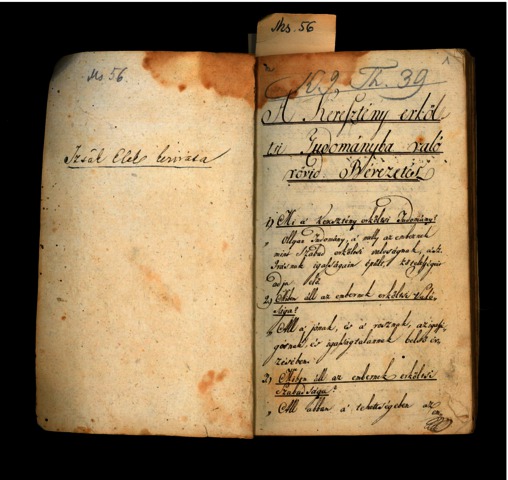 Ms. 56
Ms 56.
Izsák Elek leírása
K. 9. Th. 39
A Keresztény erköl
tsi Tudományba való
rövid Bévezetés
1) Mi a keresztény erköltsi Tudomány?
Ollyan Tudomány, a melly az embernek
mint szabad erköltsi valóságnak, a sz.
Irásnak igasságain épült, kötelességeit
adja elő.
2) Miben áll az embernek erköltsi való-
sága?
Áll a jónak, és a rosznak, az igaz-
ságnak, és igasságtalannak belső ér-
zésében.
3) Miben áll az embernek erköltsi
Szabadsága?
Áll abban a tehettségében az